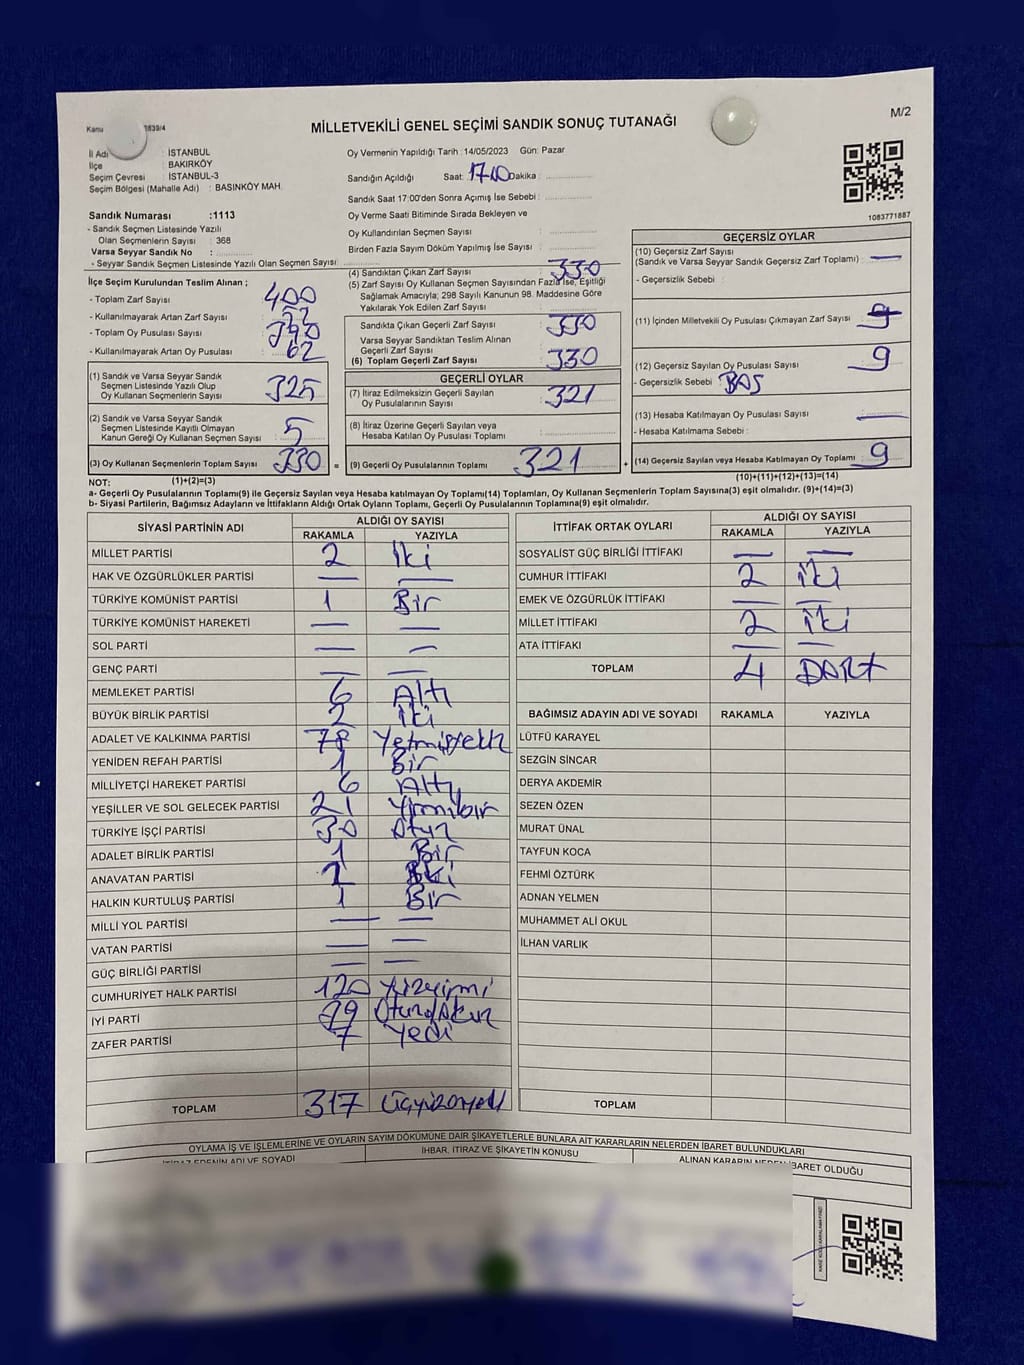 M/2
Kanu 1839/4
MİLLETVEKİLİ GENEL SEÇİMİ SANDIK SONUÇ TUTANAĞI
İl Adı : İSTANBUL
İlçe : BAKIRKÖY
Seçim Çevresi : İSTANBUL-3
Seçim Bölgesi (Mahalle Adı) : BASINKÖY MAH.
Sandık Numarası :1113
- Sandık Seçmen Listesinde Yazılı
Olan Seçmenlerin Sayısı : 368
Varsa Seyyar Sandık No :
- Seyyar Sandık Seçmen Listesinde Yazılı Olan Seçmen Sayısı:
İlçe Seçim Kurulundan Teslim Alınan ;
- Toplam Zarf Sayısı : 400
- Kullanılmayarak Artan Zarf Sayısı :
- Toplam Oy Pusulası Sayısı :
- Kullanılmayarak Artan Oy Pusulası : 62
(1) Sandık ve Varsa Seyyar Sandık
Seçmen Listesinde Yazılı Olup
Oy Kullanan Seçmenlerin Sayısı : 325
(2) Sandık ve Varsa Seyyar Sandık
Seçmen Listesinde Kayıtlı Olmayan
Kanun Gereği Oy Kullanan Seçmen Sayısı : 5
(3) Oy Kullanan Seçmenlerin Toplam Sayısı 330 =
Oy Vermenin Yapıldığı Tarih :14/05/2023 Gün: Pazar
Sandığın Açıldığı Saat: 17:10 Dakika :
Sandık Saat 17:00'den Sonra Açımış İse Sebebi :
Oy Verme Saati Bitiminde Sırada Bekleyen ve
Oy Kullandırılan Seçmen Sayısı :
Birden Fazla Sayım Döküm Yapılmış İse Sayısı :
(4) Sandıktan Çıkan Zarf Sayısı : 330
(5) Zarf Sayısı Oy Kullanan Seçmen Sayısından Fazla İse, Eşitliği
Sağlamak Amacıyla; 298 Sayılı Kanunun 98. Maddesine Göre
Yakılarak Yok Edilen Zarf Sayısı :
Sandıkta Çıkan Geçerli Zarf Sayısı : 330
Varsa Seyyar Sandıktan Teslim Alınan
Geçerli Zarf Sayısı :
(6) Toplam Geçerli Zarf Sayısı : 330
GEÇERLİ OYLAR
(7) İtiraz Edilmeksizin Geçerli Sayılan
Oy Pusulalarının Sayısı : 321
(8) İtiraz Üzerine Geçerli Sayılan veya
Hesaba Katılan Oy Pusulası Toplamı :
(9) Geçerli Oy Pusulalarının Toplamı 321 +
1083771887
GEÇERSİZ OYLAR
(10) Geçersiz Zarf Sayısı
(Sandık ve Varsa Seyyar Sandık Geçersiz Zarf Toplamı) : —
- Geçersizlik Sebebi :
(11) İçinden Milletvekili Oy Pusulası Çıkmayan Zarf Sayısı : 9
(12) Geçersiz Sayılan Oy Pusulası Sayısı : 9
- Geçersizlik Sebebi : BOŞ
(13) Hesaba Katılmayan Oy Pusulası Sayısı : —
- Hesaba Katılmama Sebebi :
(14) Geçersiz Sayılan veya Hesaba Katılmayan Oy Toplamı : 9
NOT: (1)+(2)=(3) (10)+(11)+(12)+(13)=(14)
a- Geçerli Oy Pusulalarının Toplamı(9) ile Geçersiz Sayılan veya Hesaba katılmayan Oy Toplamı(14) Toplamları, Oy Kullanan Seçmenlerin Toplam Sayısına(3) eşit olmalıdır. (9)+(14)=(3)
b- Siyasi Partilerin, Bağımsız Adayların ve İttifakların Aldığı Ortak Oyların Toplamı, Geçerli Oy Pusulalarının Toplamına(9) eşit olmalıdır.
SİYASİ PARTİNİN ADI ALDIĞI OY SAYISI
RAKAMLA YAZIYLA
MİLLET PARTİSİ 2 İki
HAK VE ÖZGÜRLÜKLER PARTİSİ — —
TÜRKİYE KOMÜNİST PARTİSİ 1 Bir
TÜRKİYE KOMÜNİST HAREKETİ — —
SOL PARTİ — —
GENÇ PARTİ — —
MEMLEKET PARTİSİ 6 Altı
BÜYÜK BİRLİK PARTİSİ 2 İki
ADALET VE KALKINMA PARTİSİ 78 Yetmişsekiz
YENİDEN REFAH PARTİSİ 1 Bir
MİLLİYETÇİ HAREKET PARTİSİ 6 Altı
YEŞİLLER VE SOL GELECEK PARTİSİ 21 Yirmibir
TÜRKİYE İŞÇİ PARTİSİ 30 Otuz
ADALET BİRLİK PARTİSİ 1 Bir
ANAVATAN PARTİSİ 2 İki
HALKIN KURTULUŞ PARTİSİ 1 Bir
MİLLİ YOL PARTİSİ — —
VATAN PARTİSİ — —
GÜÇ BİRLİĞİ PARTİSİ — —
CUMHURİYET HALK PARTİSİ 120 Yüzyirmi
İYİ PARTİ 39 Otuzdokuz
ZAFER PARTİSİ 7 Yedi
TOPLAM 317 Üçyüzonyedi
İTTİFAK ORTAK OYLARI ALDIĞI OY SAYISI
RAKAMLA YAZIYLA
SOSYALİST GÜÇ BİRLİĞİ İTTİFAKI — —
CUMHUR İTTİFAKI 2 İki
EMEK VE ÖZGÜRLÜK İTTİFAKI — —
MİLLET İTTİFAKI 2 İki
ATA İTTİFAKI — —
TOPLAM 4 Dört
BAĞIMSIZ ADAYIN ADI VE SOYADI RAKAMLA YAZIYLA
LÜTFÜ KARAYEL
SEZGİN SİNCAR
DERYA AKDEMİR
SEZEN ÖZEN
MURAT ÜNAL
TAYFUN KOCA
FEHMİ ÖZTÜRK
ADNAN YELMEN
MUHAMMET ALİ OKUL
İLHAN VARLIK
TOPLAM
OYLAMA İŞ VE İŞLEMLERİNE VE OYLARIN SAYIM DÖKÜMÜNE DAİR ŞİKAYETLERLE BUNLARA AİT KARARLARIN NELERDEN İBARET BULUNDUKLARI
İTİRAZ EDENİN ADI VE SOYADI İHBAR, İTİRAZ VE ŞİKAYETİN KONUSU ALINAN KARARIN NEDEN İBARET OLDUĞU